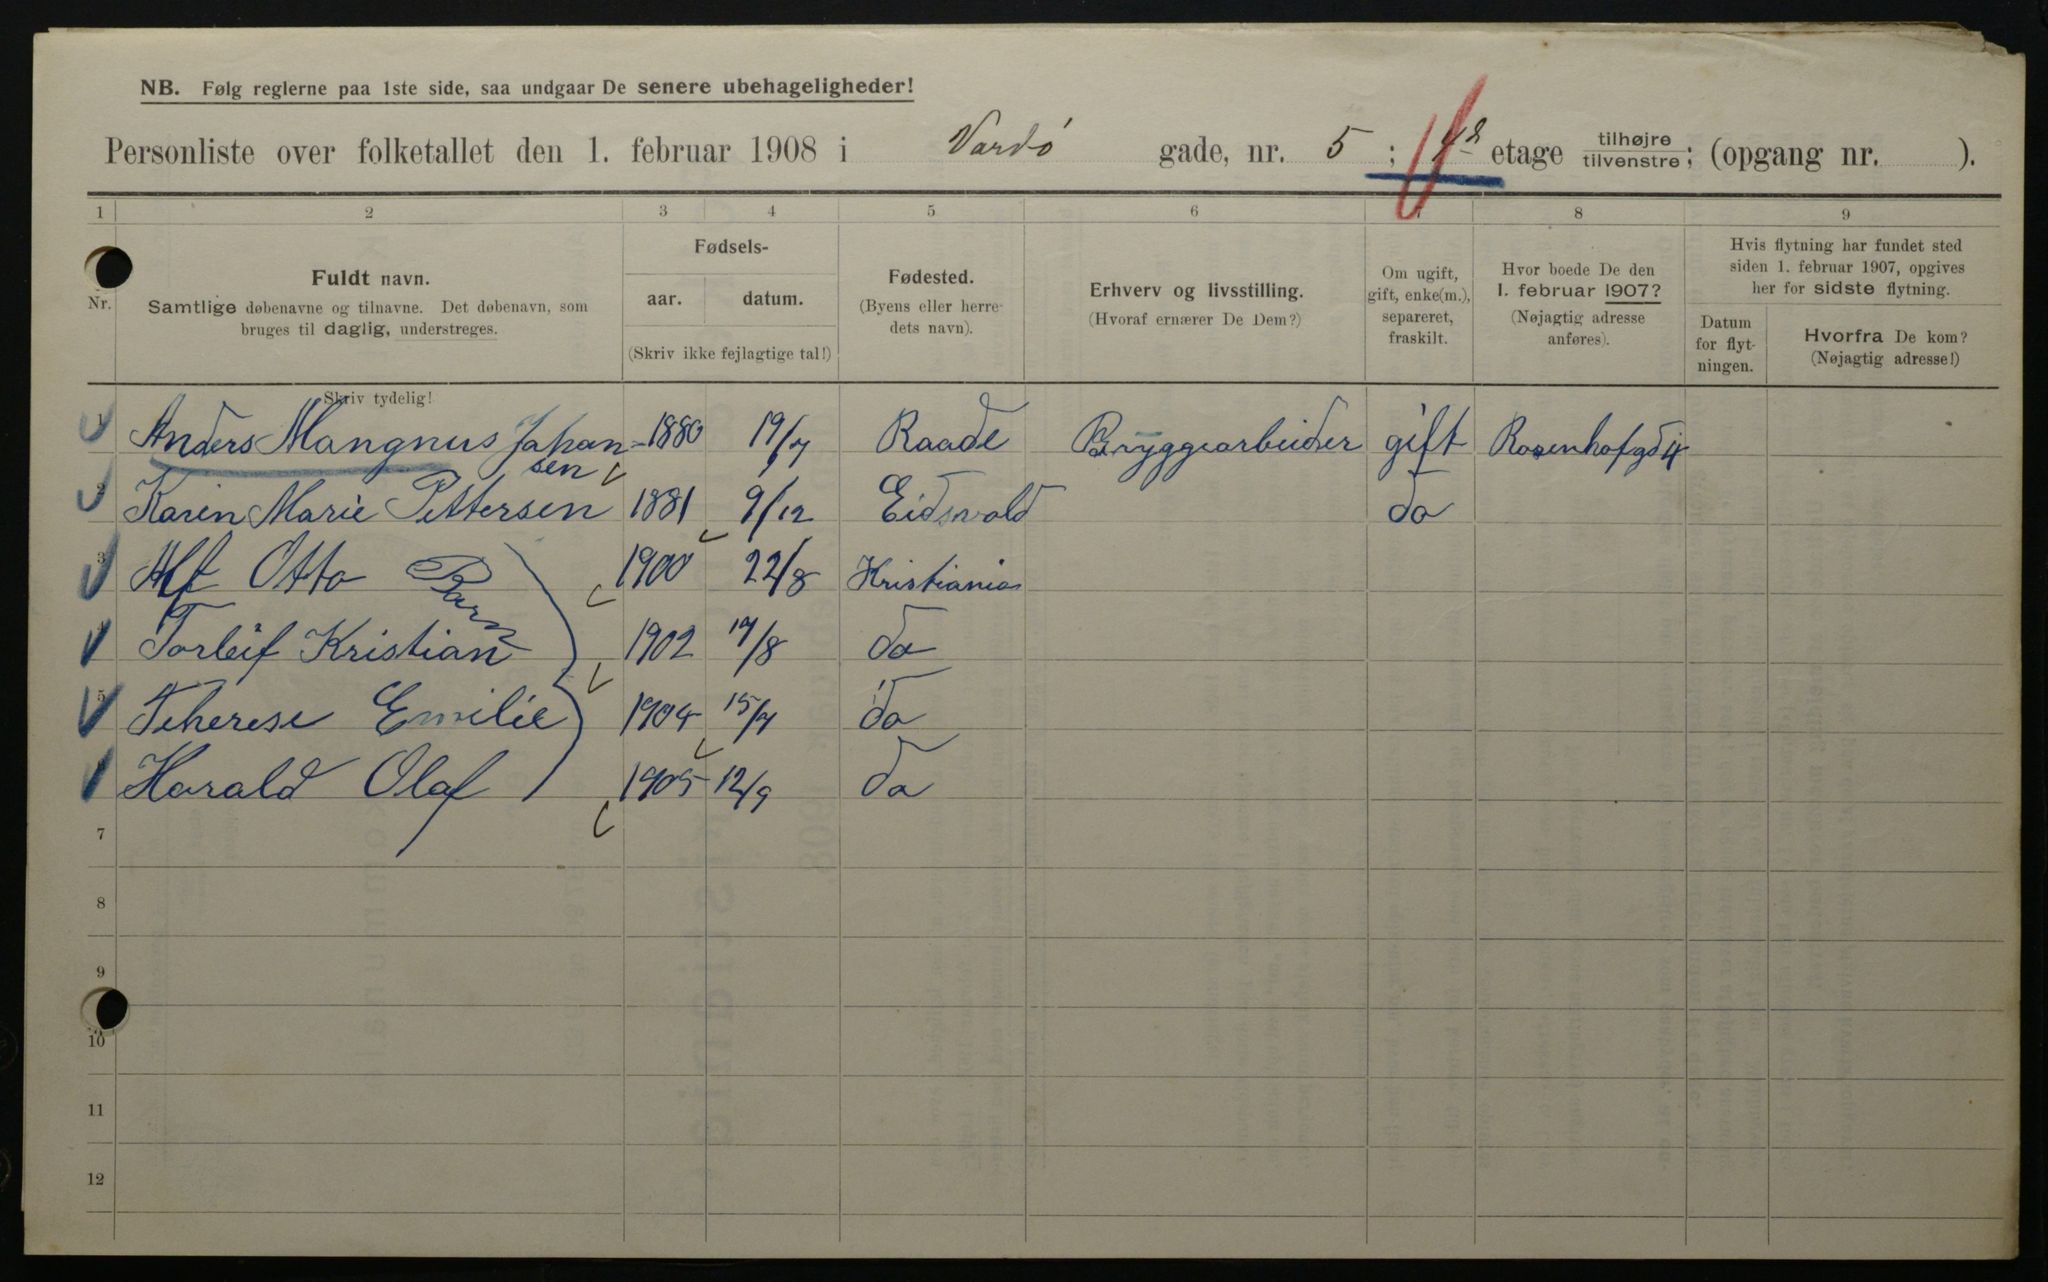 NB. Følg reglerne paa 1ste side, saa undgaar De senere ubehageligheder!
Personliste over folketallet den 1. februar 1908 i Vardø gade, nr. 5; etage tilhøjre tilvenstre; (opgang nr. ).
1 2 3 4 5 6 8 9
Nr.
Fuldt navn.
Samtlige døbenavne og tilnavne. Det døbenavn, som
bruges til daglig, understreges.
Fødsels-
aar. datum.
(Skriv ikke fejlagtige tal!)
Fødested.
(Byens eller herre-
dets navn).
Erhverv og livsstilling.
(Hvoraf ernærer De Dem?)
Om ugift,
gift, enke(m.),
separeret,
fraskilt.
Hvor boede De den
1. februar 1907?
(Nøjagtig adresse
anføres).
Hvis flytning har fundet sted
siden 1. februar 1907, opgives
her for sidste flytning.
Datum
for flyt-
ningen.
Hvorfra De kom?
(Nøjagtig adresse!)
Skriv tydelig!
1 Anders Mangnus Johan- 1880 19/7 Raade Bryggearbeider gift Rosenhofgd 4
sen
2 Karin Marie Pettersen 1881 9/12 Eidsvold do
3 Alf Otto Barn 1900 22/8 Kristiania
Torleif Kristian 1902 17/8 do
5 Teherese Emilie 1904 15/7 do
Harald Olaf 1905 12/9 do
7
8
9
10
11
12